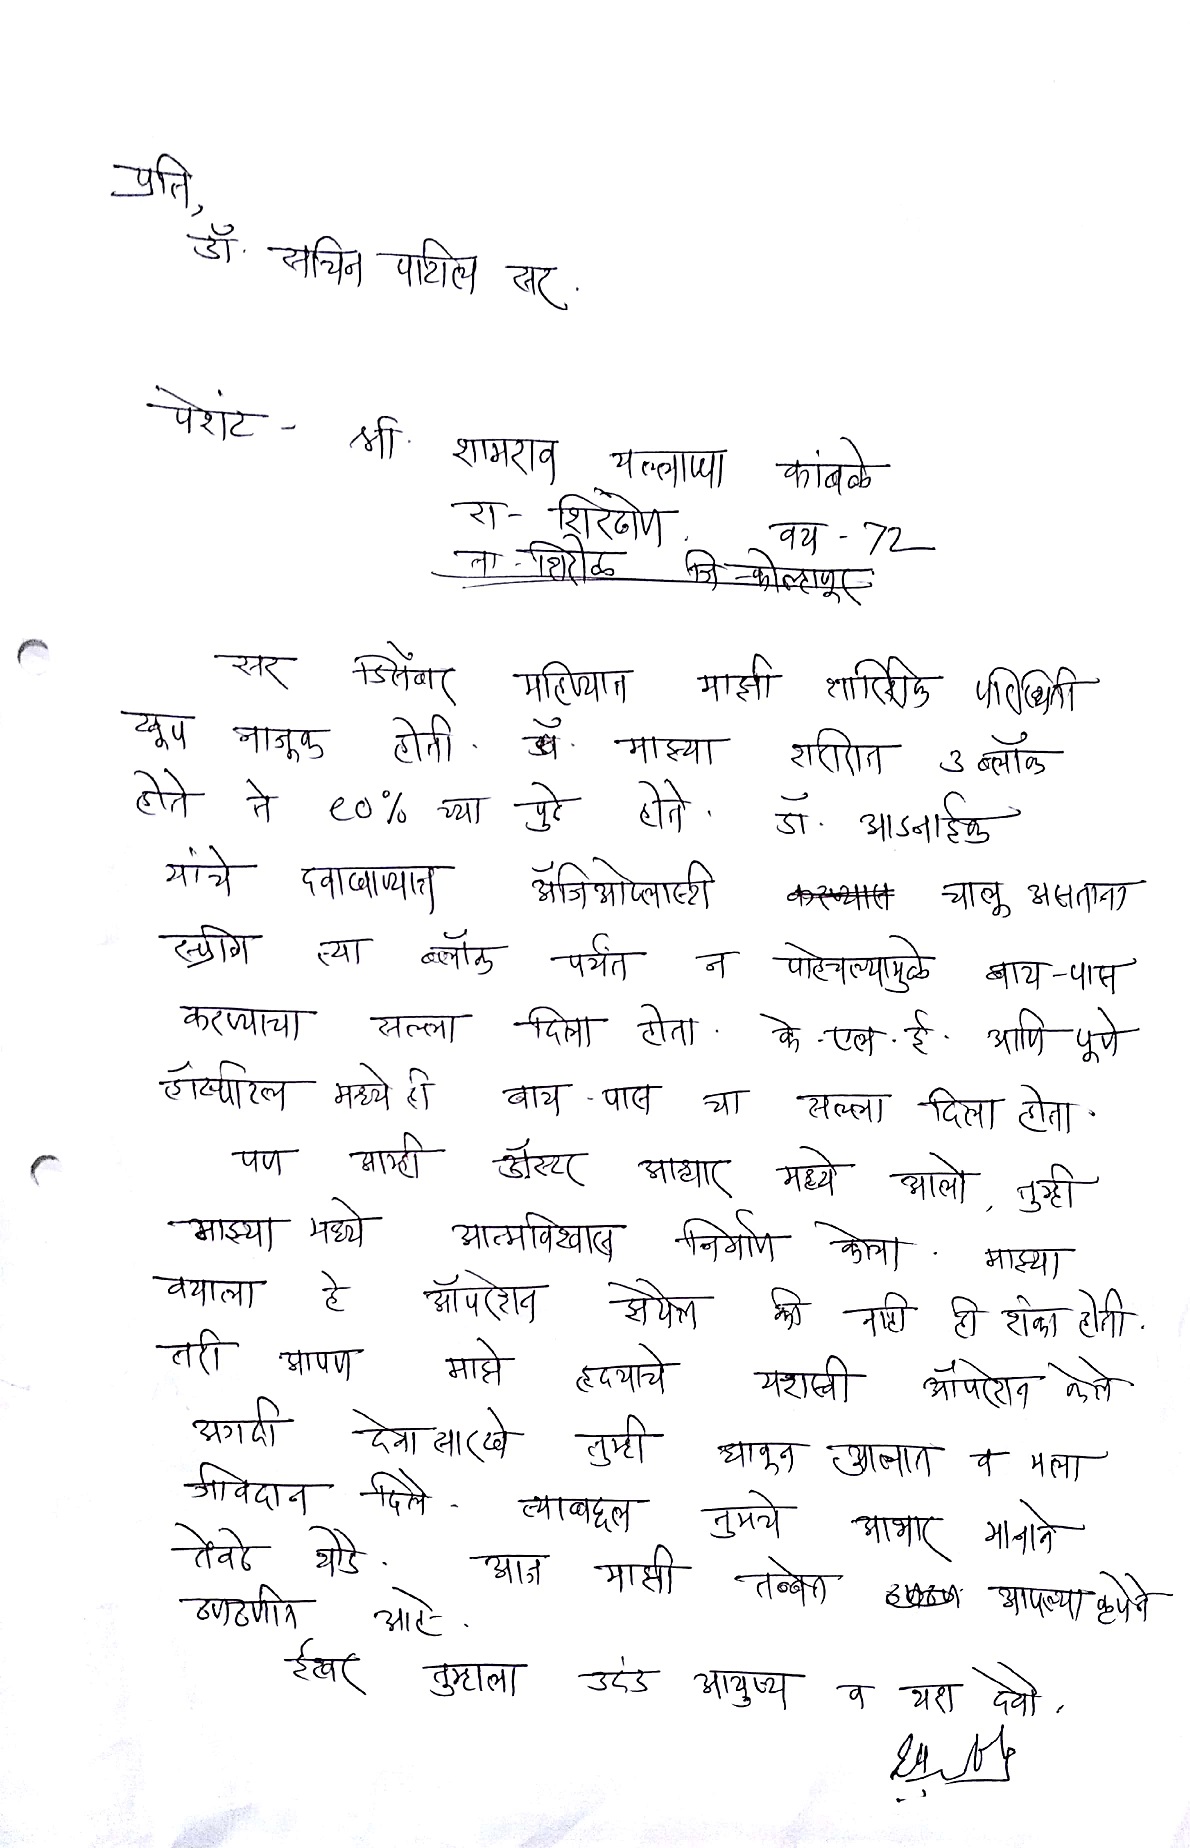 प्रति,
डॉ. सचिन पाटील सर.
पेशंट - श्री. शामराव यल्लाप्पा कांबळे
रा - शिरढोण. वय - 72
ता - शिरोळ जि - कोल्हापूर
सर डिसेंबर महिण्यात माझी शारिरीक परिस्थिती
खूप नाजूक होती. माझ्या शरीरात 3 ब्लॉक
होते ते ९०% च्या पुढे होते. डॉ. आडनाईक
यांचे दवाखाण्यात अँजिओप्लास्टी चालू असताना
स्प्रींग त्या ब्लॉक पर्यंत न पोहचल्यामुळे बाय-पास
करण्याचा सल्ला दिला होता. के.एल.ई. आणि पूणे
हॉस्पीटल मध्ये ही बाय-पास चा सल्ला दिला होता.
पण आम्ही अ‍ॅस्टर आधार मध्ये आलो, तुम्ही
माझ्या मध्ये आत्मविश्वास निर्माण केला. माझ्या
वयाला हे ऑपरेशन झेपेल की नाही ही शंका होती.
तरी आपण माझे हृदयाचे यशस्वी ऑपरेशन केले
अगदी देवासारखे तुम्ही धावून आलात व मला
जीवदान दिले. त्याबद्दल तुमचे आभार मानावे
तेवढे थोडे. आज माझी तब्बेत आपल्या कृपेने
ठणठणीत आहे.
ईश्वर तुम्हाला उदंड आयुष्य व यश देवो.